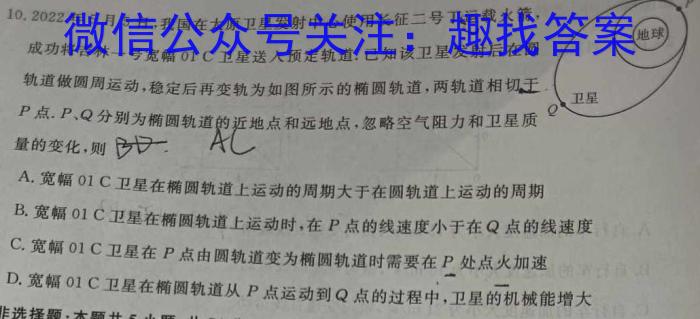 10. 2022年 月 ,我国在太原卫星发射中心使用长征二号丁运载火箭,
微信公众号关注:趣找答案
成功将吉林一号宽幅01C卫星送入预定轨道.已知该卫星发射后在圆
轨道做圆周运动,稳定后再变轨为如图所示的椭圆轨道,两轨道相切于
P点.P、Q分别为椭圆轨道的近地点和远地点,忽略空气阻力和卫星质
量的变化,则 BD. AC
P
地球
卫星
Q
A. 宽幅01C卫星在椭圆轨道上运动的周期大于在圆轨道上运动的周期
B. 宽幅01C卫星在椭圆轨道上运动时,在P点的线速度小于在Q点的线速度
C. 宽幅01C卫星在P点由圆轨道变为椭圆轨道时需要在P处点火加速
D. 宽幅01C卫星在椭圆轨道从P点运动到Q点的过程中,卫星的机械能增大
非选择题:本题共5小题,共